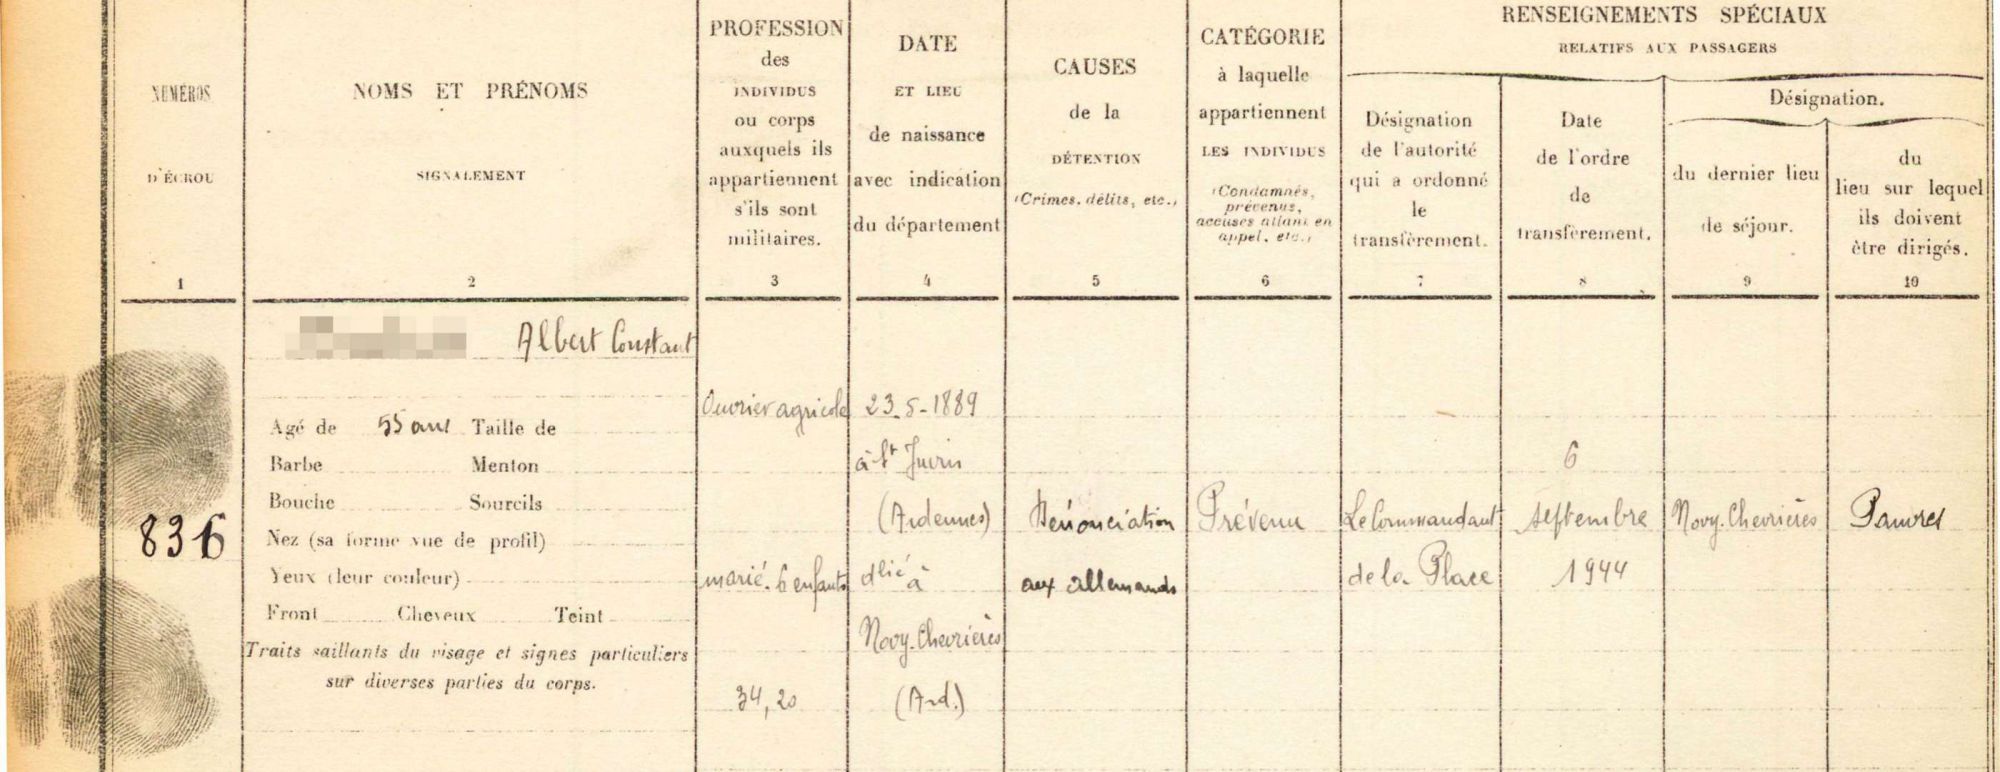 NUMÉROS
D'ÉCROU
1
NOMS ET PRÉNOMS
SIGNALEMENT
2
PROFESSION
des
INDIVIDUS
ou corps
auxquels ils
appartiennent
s'ils sont
militaires.
3
DATE
ET LIEU
de naissance
avec indication
du département
4
CAUSES
de la
DÉTENTION
(Crimes, délits, etc.,
5
CATÉGORIE
à laquelle
appartiennent
LES INDIVIDUS
(Condamnés,
prévenus,
accusés allant en
appel, etc.,
6
RENSEIGNEMENTS SPÉCIAUX
RELATIFS AUX PASSAGERS
Désignation
de l'autorité
qui a ordonné
le
transfèrement.
7
Date
de l'ordre
de
transfèrement.
8
Désignation.
du dernier lieu
de séjour.
9
du
lieu sur lequel
ils doivent
être dirigés.
10
836
Albert Constant
Agé de 55 ans Taille de
Barbe Menton
Bouche Sourcils
Nez (sa forme vue de profil)
Yeux (leur couleur)
Front Cheveux Teint
Traits saillants du visage et signes particuliers
sur diverses parties du corps.
Ouvrier agricole
marié. 6 enfants
34,20
23-5-1889
à St Juvin
(Ardennes)
dlié à
Novy-Chevrières
(Ard.)
Dénonciation
aux allemands
Prévenu
Le Commandant
de la Place
6
septembre
1944
Novy-Chevrières